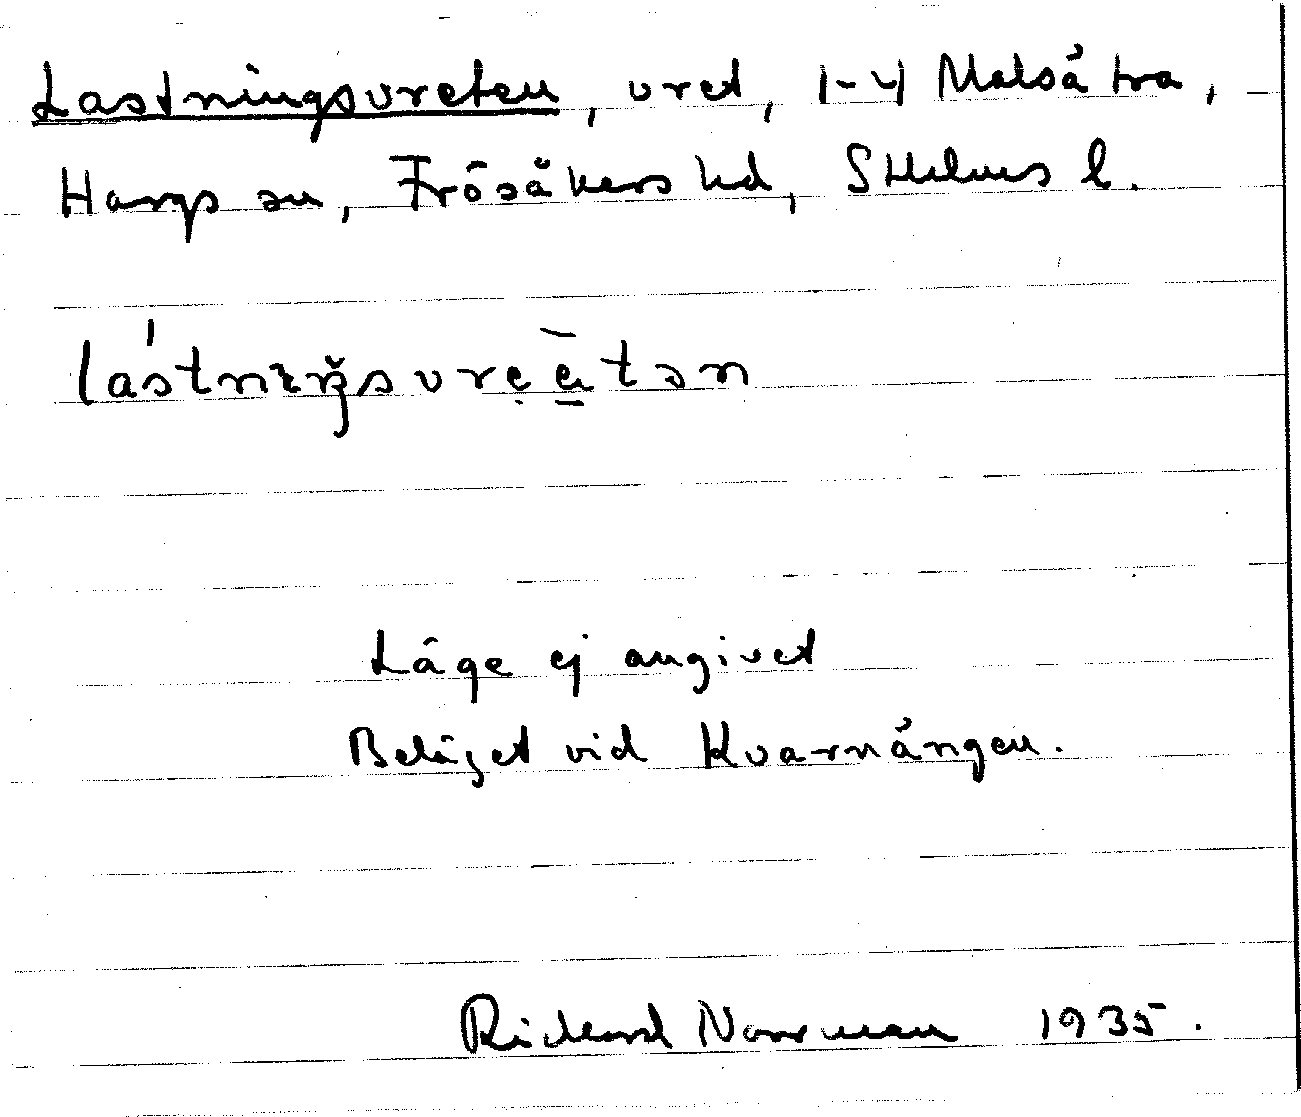 Lastningsvreten, vret, 1-4 Malsätra,
Hargs sn, Frösåkers hd, Sthlms l.
lástnɪŋsvrẹe̱tən
Läge ej angivet
Beläget vid Kvarnängen.
Rickard Norrman 1935.